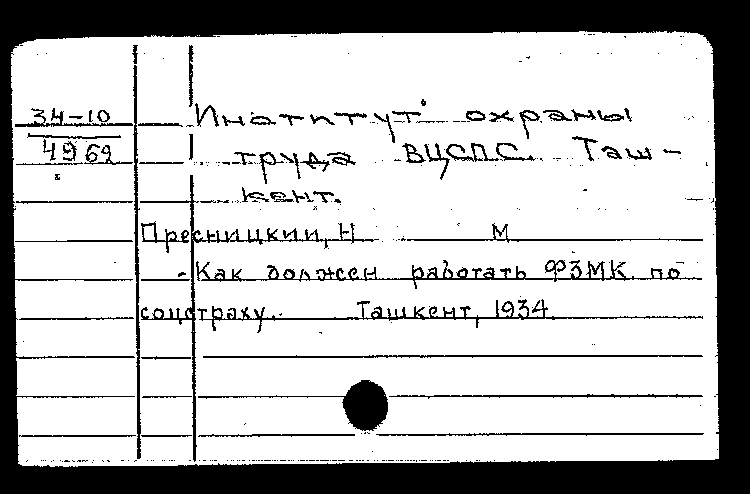 34-10
4962
Институт охраны
труда ВЦСПС. Таш-
кент.
Пресницкий, Н М
- Как должен работать ФЗМК по
соцстраху. Ташкент, 1934.